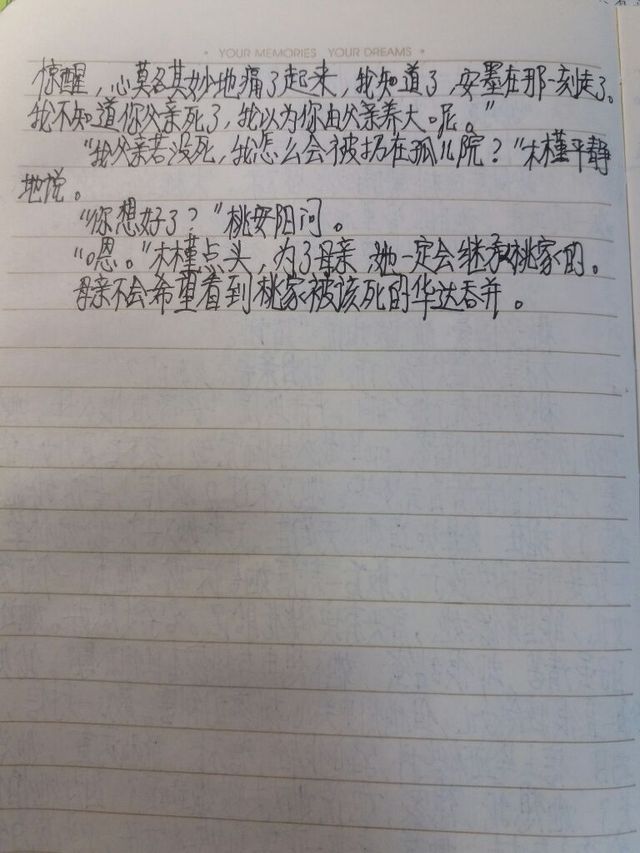 YOUR MEMORIES YOUR DREAMS
惊醒，心莫名其妙地痛了起来，我知道了，安墨在那一刻走了。
我不知道你父亲死了，我以为你由父亲养大呢。”
“我父亲若没死，我怎么会被扔在孤儿院？”木槿平静
地说。
“你想好了？”桃安阳问。
“嗯。”木槿点头，为了母亲，她一定会继承桃家的。
母亲不会希望看到桃家被该死的华达吞并。